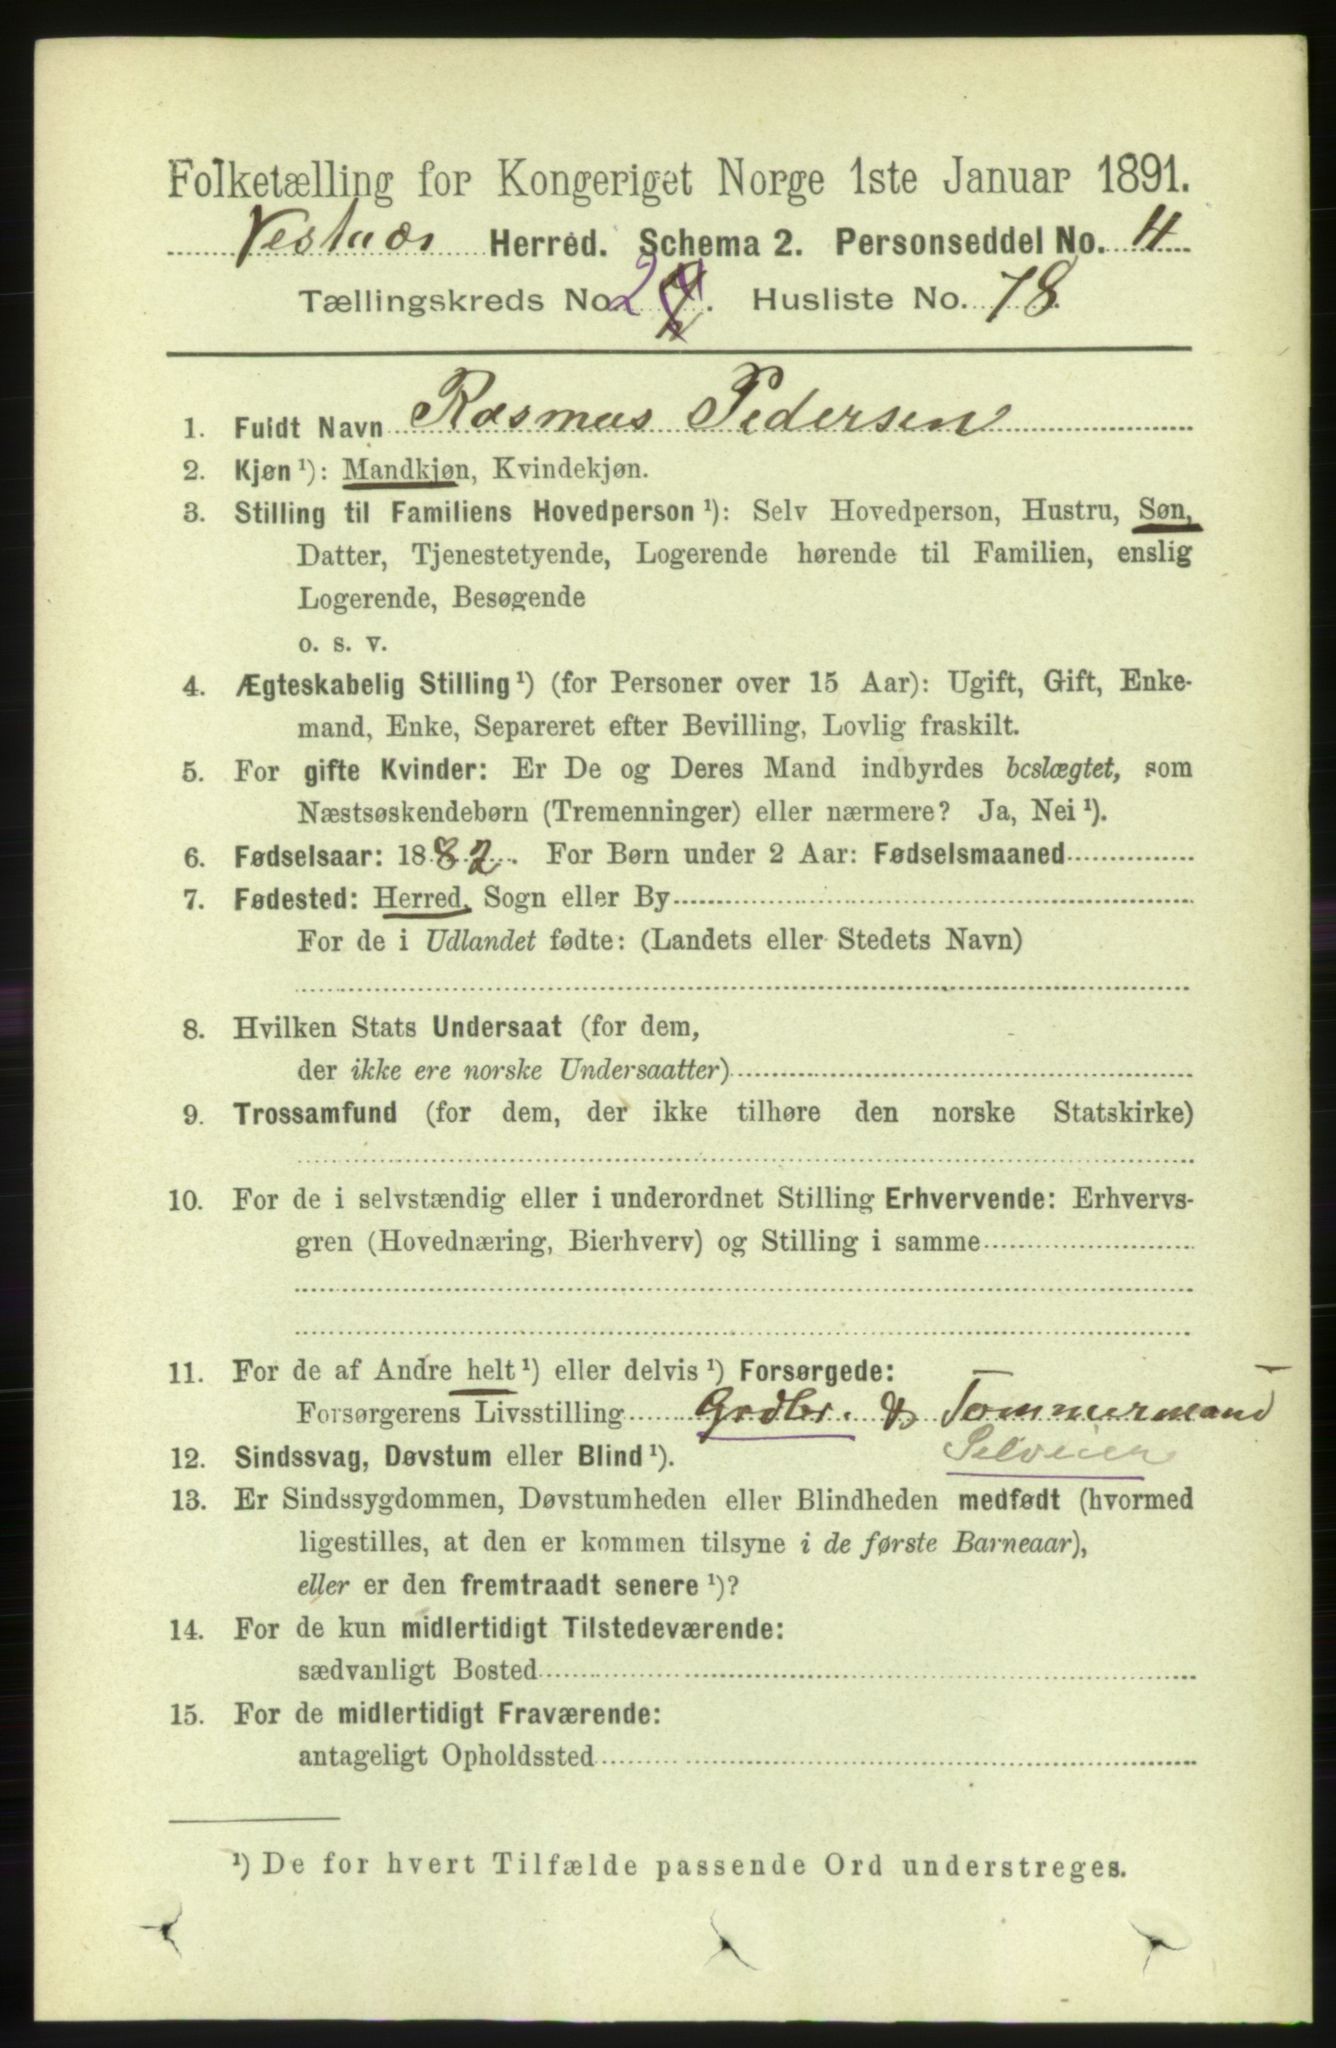 Folketælling for Kongeriget Norge 1ste Januar 1891.
Vestnæs Herred. Schema 2. Personseddel No. 4
Tællingskreds No. 2. Husliste No. 78.
1. Fuldt Navn Rasmus Pedersen
2. Kjøn ¹): Mandkjøn, Kvindekjøn.
3. Stilling til Familiens Hovedperson ¹): Selv Hovedperson, Hustru, Søn,
Datter, Tjenestetyende, Logerende hørende til Familien, enslig
Logerende, Besøgende
o. s. v.
4. Ægteskabelig Stilling ¹) (for Personer over 15 Aar): Ugift, Gift, Enke-
mand, Enke, Separeret efter Bevilling, Lovlig fraskilt.
5. For gifte Kvinder: Er De og Deres Mand indbyrdes beslægtet, som
Næstsøskendebørn (Tremenninger) eller nærmere? Ja, Nei ¹).
6. Fødselsaar: 1882. For Børn under 2 Aar: Fødselsmaaned
7. Fødested: Herred, Sogn eller By
For de i Udlandet fødte: (Landets eller Stedets Navn)
8. Hvilken Stats Undersaat (for dem,
der ikke ere norske Undersaatter)
9. Trossamfund (for dem, der ikke tilhøre den norske Statskirke)
10. For de i selvstændig eller i underordnet Stilling Erhvervende: Erhvervs-
gren (Hovednæring, Bierhverv) og Stilling i samme
11. For de af Andre helt ¹) eller delvis ¹) Forsørgede:
Forsørgerens Livsstilling Grdbr. & Tømmermand
Selveier
12. Sindssvag, Døvstum eller Blind ¹).
13. Er Sindssygdommen, Døvstumheden eller Blindheden medfødt (hvormed
ligestilles, at den er kommen tilsyne i de første Barneaar),
eller er den fremtraadt senere ¹)?
14. For de kun midlertidigt Tilstedeværende:
sædvanligt Bosted
15. For de midlertidigt Fraværende:
antageligt Opholdssted
¹) De for hvert Tilfælde passende Ord understreges.